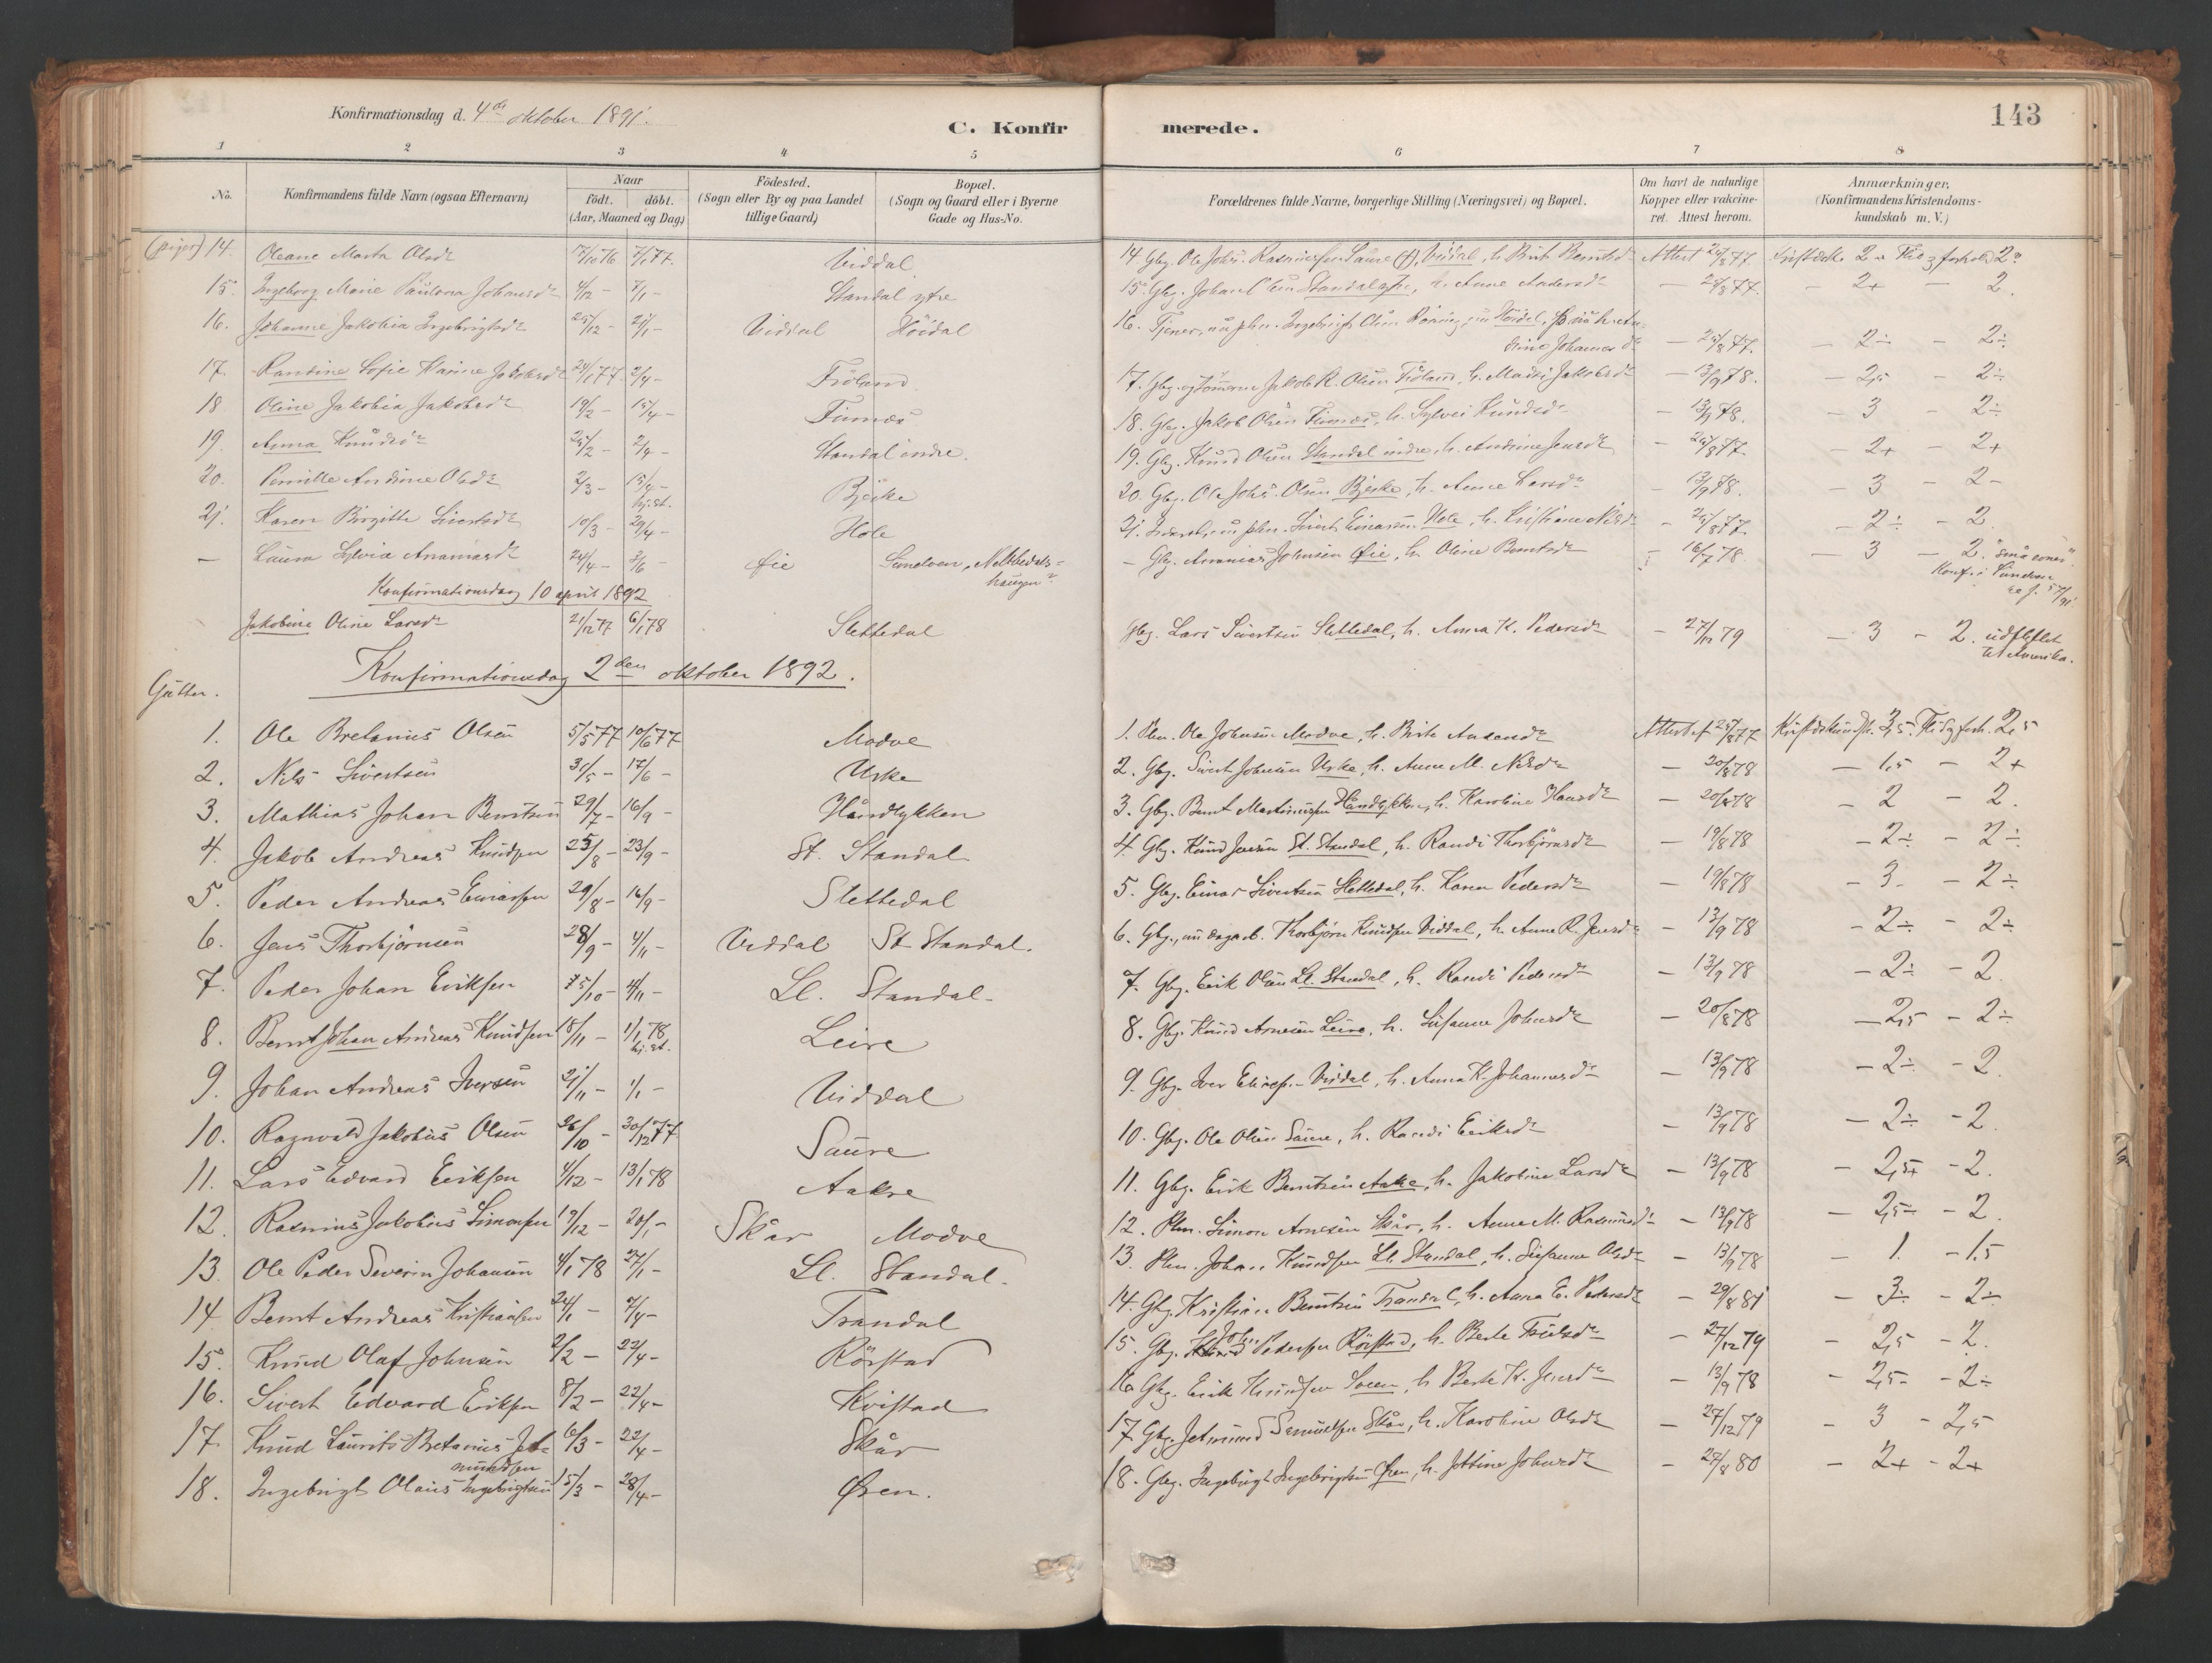 Konfirmationsdag d. 4de oktober 1891.
C. Konfirmerede.
143
1 2 3 4 5 6 7 8
No.
Konfirmandens fulde Navn (ogsaa Efternavn)
Naar
födt. döbt.
(Aar, Maaned og Dag)
Födested.
(Sogn eller By og paa Landet
tillige Gaard)
Bopæl.
(Sogn og Gaard eller i Byerne
Gade og Hus-No.
Forældrenes fulde Navne, borgerlige Stilling (Næringsvei) og Bopæl.
Om havt de naturlige
Kopper eller vakcine-
ret. Attest herom.
Anmærkninger,
(Konfirmandens Kristendoms-
kundskab m. V.)
(piger) 14. Oleane Marta Olsdr 7/1 77. Viddal 14 Gbg. Ole Johs. Rasmussen Saure (†), Viddal, h. Birit Berntsdr Attest 25/8 77
15. Ingeborg Marie Paulona Johansdr 4/12 - 7/1 - Standal ytre 15. Gbg. Johan Olsen Standal ytre, h. Anne Andersdr - 25/8 77. - 2+ - 2.
16. Johanne Jakobia Ingebrigtsdr 25/12 - 21/1 - Viddal Höidal
- 25/8 77. - 2÷ - 2÷
17. Randine Sofie Karine Jakobsdr 24/1 77. 2/4 - Fröland 17. Gbg. og Tømmerm Jakob K. Olsen Fröland, h. Madsi Jakobsdr - 13/9 78. - 2,5 - 2÷
18 Oline Jakobia Jakobsdr 19/2 - 15/4 - Finnes 18. Gbg. Jakob Olsen Finnes, h. Sylvei Knudsdr - 13/9 78. - 3 - 2÷
19. Anna Knudsdr 25/2 - 2/4 - Standal indre. 19. Gbg. Knud Olsen Standal indre, h. Andrine Jensdr - 25/8 77. - 2+ - 2+
20. Pernille Andrine Olsdr 2/3 - 15/4 - Bjerke 20. Gbg. Ole Johs. Olsen Bjerke, h. Anne Larsdr - 13/9 78. - 3 - 2-
hj.st.
21. Karen Birgitte Sivertsdr 10/3 - 29/4 - Hole 21. Inderst, nu plm. Sivert Einarsen Hole, h. Kristiane Nilsdr - 25/8 77. - 2÷ - 2
- Laura Sylvia Ananiasdr 24/4 - 3/6 - Øie Sunelven, Meltkedals-
haugen? - Gbg. Ananias Johnsen Øie, h. Oline Berntsdr - 16/7 78. - 3 - 2.
Konfirmationsdag 10 april 1892
Jakobine Oline Larsdr 21/12 77 6/1 78 Slettedal Gbg. Lars Sivertsen Slettedal, h. Anna K. Pedersdr - 27/12 79 - 3 - 2. udflyttet
til Amerika.
Konfirmationsdag 2den oktober 1892.
Gutter.
1. Ole Bretanius Olsen 5/5 77 10/6 77 Modve 1. Plm. Ole Johnsen Modve, h. Birte Ananddr Attest af 25/8 77
2. Nils Sivertsen 31/5 - 17/6 - Urke 2. Gbg. Sivert Johnsen Urke, h. Anne M. Nilsdr - 20/8 78 - 1,5 - 2+
3. Mathias Johan Berntsen 29/7 - 16/9 - Håndlykken 3. Gbg. Bernt Martinussen Håndlykken, h. Karoline Hansdr - 20/8 78 - 2 - 2.
4. Jakob Andreas Knudsen 25/8 - 23/9 - St. Standal 4. Gbg. Knud Jensen St. Standal, h. Randi Thorbjörnsdr - 19/8 78 - 2÷ - 2÷
5. Peder Andreas Einarsen 29/8 - 16/9 - Slettedal 5. Gbg. Einar Sivertsen Slettedal, h. Karen Pedersdr - 19/8 78 - 3. - 2÷
6. Jens Thorbjörnsen 28/9 - 4/11 - Viddal St. Standal. 6. Gbg., nu dagarb. Thorbjörn Knudsen Viddal, h. Anne R. Jensdr - 13/9 78 - 2÷ - 2÷
7. Peder Johan Eriksen 25/10 - 4/11 - Ll. Standal 7. Gbg. Erik Olsen Ll. Standal, h. Randi Pedersdr - 13/9 78 - 2÷ - 2
8. Bernt Johan Andreas Knudsen 18/11 - 1/1 78 Leire 8. Gbg. Knud Arnesen Leire, h. Susanne Johnsdr - 20/8 78 - 2,5 - 2÷
hj.st.
9. Johan Andreas Iversen 21/11 - 1/1 - Viddal 9. Gbg. Iver Eliasen Viddal, h. Anna K. Johannesdr - 13/9 78 - 2÷ - 2.
10. Ragnvald Jakobus Olsen 26/10 - 30/12 77 Saure 10. Gbg. Ole Olsen Saure, h. Randi Eriksdr - 13/9 78 - 2÷ - 2.
11. Lars Edvard Eriksen 4/12 - 13/1 78 Aakre 11. Gbg. Erik Berntsen Aakre, h. Jakobine Larsdr - 13/9 78 - 2,5+ - 2.
12. Rasmus Jakobus Simonsen 19/12 - 20/1 - Skår Modve 12. Plm. Simon Arnesen Skår, h. Anne M. Rasmusdr - 13/9 78 - 2,5- - 2.
13. Ole Peder Severin Johansen 4/1 78 27/1 - Ll. Standal. 13. Plm. Johan Knudsen Ll. Standal, h. Susanne Olsdr - 13/9 78 - 1. - 1,5
14. Bernt Andreas Kristiansen 24/1 - 7/4 - Trandal 14. Gbg. Kristian Berntsen Trandal, h. Anna E. Pedersdr - 29/8 81 - 3÷ - 2÷
15. Knud Olaf Johnsen 2/2 - 22/4 - Rörstad 15. Gbg. John Pedersen Rörstad, h. Berte Truelsdr - 27/12 79 - 2,5 - 2.
16. Sivert Edvard Eriksen 8/2 - 22/4 - Kvistad 16 Gbg. Erik Knudsen h. Berte K. Jensdr - 13/9 78 - 2,5- - 2÷
17. Knud Laurits Bretanius Jet- 6/3 - 22/4 - Skår 17 Gbg. Jetmund Samuelsen Skår, h. Karoline Olsdr - 27/12 79 - 3 - 2,5
mundsen
18. Ingebrigt Olaus Ingebrigtsen 15/3 - 28/4 - Øren. 18. Gbg. Ingebrigt Ingebrigtsen Øren, h. Jettine Johnsdr - 27/8 80 - 2+ - 2+